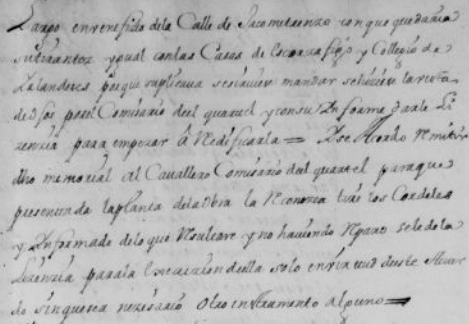 Largo en venefisio dela Calle de Jacometrenzo con que quedaria
su tirantez ygual con las Casas de y Collegio de
Irlandeses porque suplicava se sirviese mandar se hiciese la vista
de ojos por el Comisario del quartel y con su Informe darle Li
zenzia para empezar â Redificarla = Y se Acordo Remitir
dho memorial al Cavallero Comisario del quartel para que
presentada la planta dela Obra la Reconozca tire los Cordeles
y Informado delo que Resultare y no haviendo Reparo se le de la
Lizenzia para la Execuzion della solo en virtud deste Acuer
do sin que sea nezesario Otro instrumento alguno =